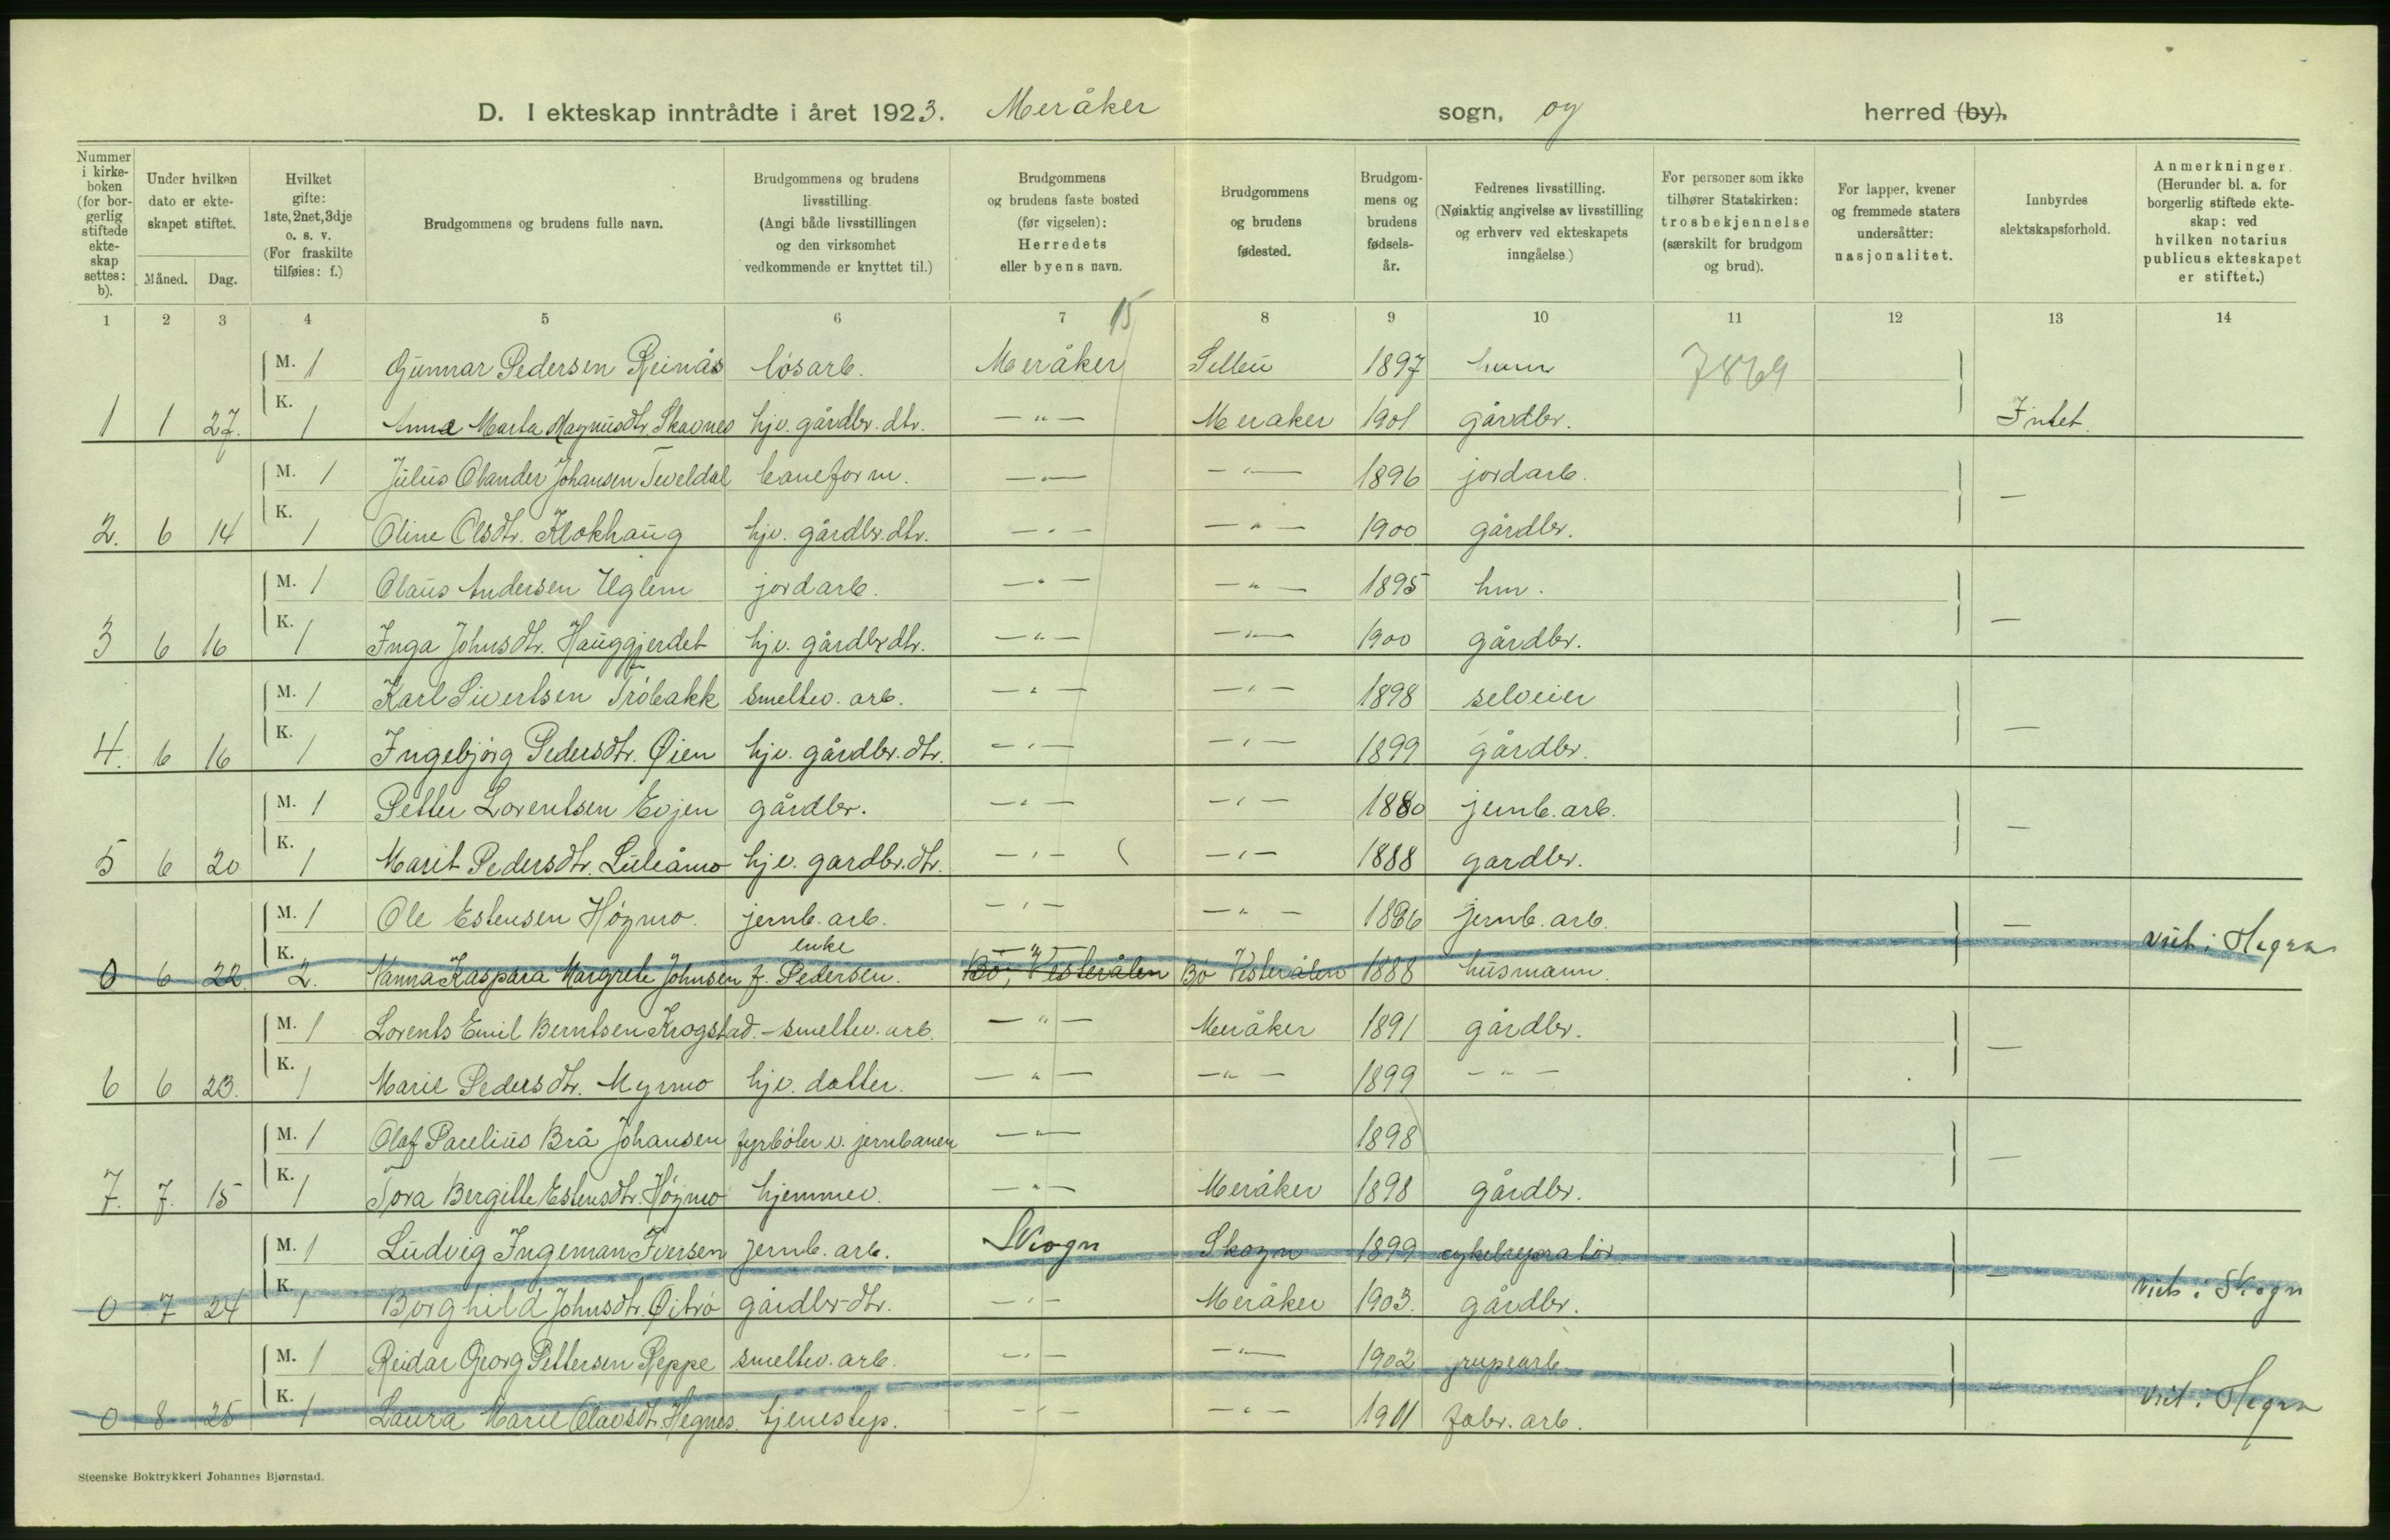 D. I ekteskap inntrådte i året 1923. Meråker sogn, og herred (by).
Nummer i kirkeboken (for borgerlig stiftede ekteskap settes: b). Under hvilken dato er ekteskapet stiftet. Måned. Dag. Hvilket gifte: 1ste, 2net, 3dje o. s. v. (For fraskilte tilføies: f.) Brudgommens og brudens fulle navn. Brudgommens og brudens livsstilling. (Angi både livsstillingen og den virksomhet vedkommende er knyttet til.) Brudgommens og brudens faste bosted (før vigselen): Herredets eller byens navn. Brudgommens og brudens fødested. Brudgommens og brudens fødselsår. Fedrenes livsstilling. (Nøiaktig angivelse av livsstilling og erhverv ved ekteskapets inngåelse.) For personer som ikke tilhører Statskirken: trosbekjennelse (særskilt for brudgom og brud). For lapper, kvener og fremmede staters undersåtter: nasjonalitet. Innbyrdes slektskapsforhold. Anmerkninger. (Herunder bl. a. for borgerlig stiftede ekteskap: ved hvilken notarius publicus ekteskapet er stiftet.)
15
1 2 3 4 5 6 7 8 9 10 11 12 13 14
M. 1 Gunnar Pedersen Reinås løsarb. Meråker 1897 7869
1 1 27. K. 1 Anna Marta Magnusdtr. Skavnes hjv. gårdbr. dtr. —"— Meraker 1901 gårdbr. Intet.
M. 1 Julius Olander Johansen Teveldal baneform. —"— —"— 1896 jordarb.
2. 6 14 K. 1 Oline Olsdtr. Klokhaug hjv. gårdbr. dtr. —"— —"— 1900 gårdbr. —
M. 1 Olaus Andersen Uglem jordarb. —"— —"— 1895 hm.
3 6 16 K. 1 Inga Johnsdtr. Hauggjerdet hjv. gårdbr dtr. —"— —"— 1900 gårdbr. —
M. 1 Karl Sivertsen Trøbakk smeltev. arb. —"— —"— 1898 selveier
4. 6 16 K. 1 Ingebjørg Pedersdtr. Øien hjv. gårdbr. dtr. —"— —"— 1899 gårdbr. —
M. 1 Petter Lorentsen Evjen gårdbr. —"— —"— 1880 jernb. arb.
5 6 20 K. 1 Marit Pedersdtr. Luleåmo hjv. gardbr. dtr. —"— —"— 1888 gardbr. —
M. 1 Ole Estensen Høgmo. jernb. arb. —"— —"— 1886 jernb. arb. —
0 6 22. K. 2. Nanna Kaspara Margrete Johnsen f. Pedersen. enke —"— Bø, Vesterålen Bø Vesterålen 1888 husmann. viet i Hegra
M. 1 Lorents Emil Berntsen Krogstad. - smeltev. arb. —"— Meråker 1891 gårdbr.
6 6 23. K. 1 Marie Pedersdtr. Myrmo hjv. datter. —"— —"— 1899 —"— —
M. 1 Olaf Parelius Brå Johansen fyrbøter v. jernbanen —"— 1898
7. 7. 15 K. 1 Tora Bergitte Estensdtr. Høgmo hjemmev. —"— Meråker 1898 gårdbr. —
M. 1 Ludvig Ingeman Iversen jernb. arb. Skogn Skogn 1899 cykelreparatør
0 7 24 K. 1 Borghild Johnsdtr. Øitrø gårdbr. dtr. —"— Meråker 1903. gårdbr. — viet i Skogn
M. 1 Reidar Georg Pettersen Reppe smeltev. arb. —"— —"— 1902 grupearb.
0 8 25 K. 1 Laura Marie Olavsdtr. Hegnes. tjenestep. —"— —"— 1901 fabr. arb. — viet i Hegra
Steenske Boktrykkeri Johannes Bjørnstad.